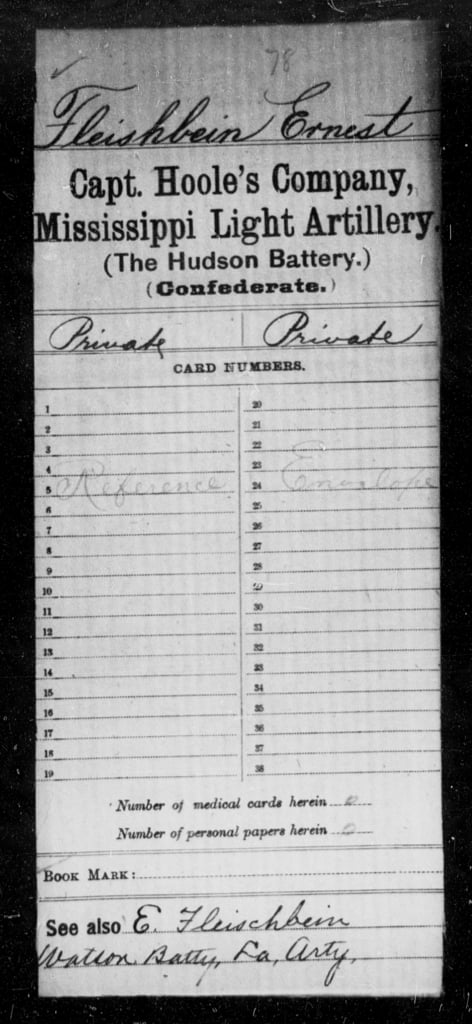 78
Fleishbein Ernest
Capt. Hoole's Company,
Mississippi Light Artillery.
(The Hudson Battery.)
(Confederate.)
Private Private
CARD NUMBERS.
1 20
2 21
3 22
4 23
5 Reference 24 Envelope
6 25
7 26
8 27
9 28
10 29
11 30
12 31
13 32
14 33
15 34
16 35
17 36
18 37
19 38
Number of medical cards herein 0
Number of personal papers herein 0
BOOK MARK:
See also E. Fleischbein
Watson Batty, La, Arty.